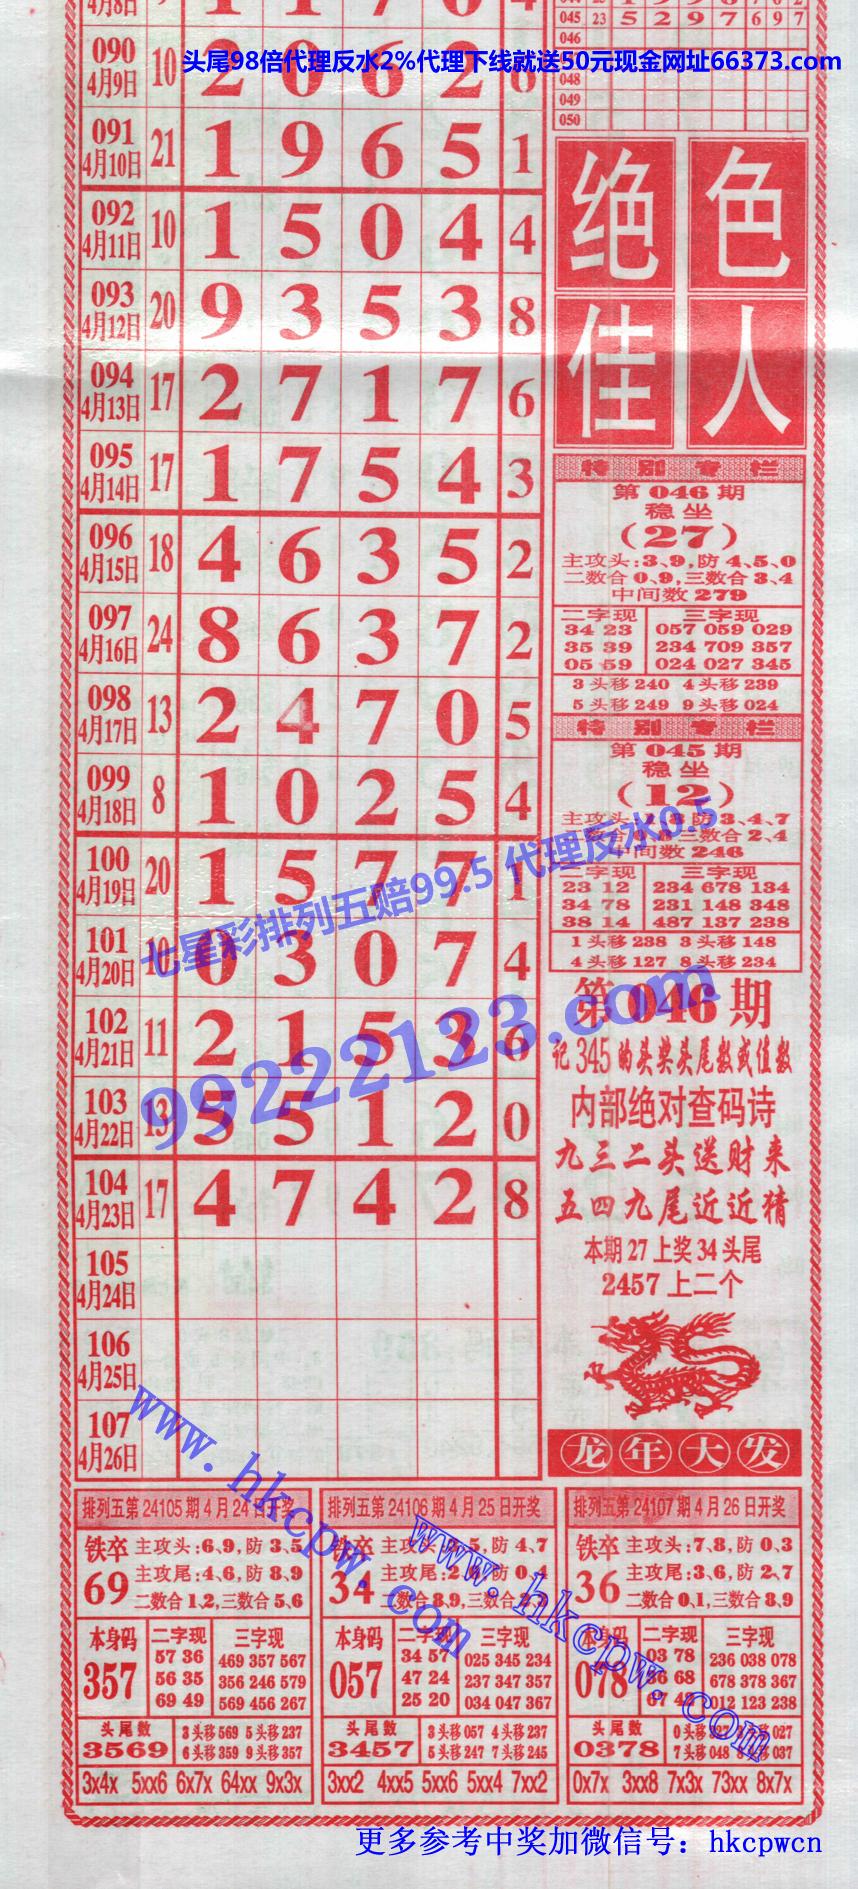 4月8日
045 23 5 2 9 7 6 9 7
046
头尾98倍代理反水2%代理下线就送50元现金网址66373.com
048
049
050
090
4月9日 10 2 0 6 2 6
091
4月10日 21 1 9 6 5 1
092
4月11日 10 1 5 0 4 4
093
4月12日 20 9 3 5 3 8
094
4月13日 17 2 7 1 7 6
095
4月14日 17 1 7 5 4 3
096
4月15日 18 4 6 3 5 2
097
4月16日 24 8 6 3 7 2
098
4月17日 13 2 4 7 0 5
099
4月18日 8 1 0 2 5 4
100
4月19日 20 1 5 7 7 1
101
4月20日 10 0 3 0 7 4
102
4月21日 11 2 1 5 3 6
103
4月22日 13 5 5 1 2 0
104
4月23日 17 4 7 4 2 8
105
4月24日
106
4月25日
107
4月26日
七星彩排列五赔99.5 代理反水0.5
99222123.com
绝色
佳人
特别专栏
第046期
稳坐
(27)
主攻头:3、9,防4、5、0
二数合0、9,三数合3、4
中间数279
二字现 三字现
34 23 057 059 029
35 39 234 709 357
05 59 024 027 345
3头移240 4头移239
5头移249 9头移024
特别专栏
第045期
稳坐
(12)
主攻头:1、8 防3、4、7
三数合2、4
中间数246
二字现 三字现
23 12 234 678 134
34 78 231 148 348
38 14 487 137 238
1头移238 3头移148
4头移127 8头移234
第046期
记345的头奖头尾数或值数
内部绝对查码诗
九三二头送财来
五四九尾近近猜
本期27上奖34头尾
2457上二个
龙年大发
www.hkcpw.com
排列五第24105期4月24日开奖
铁卒 69
主攻头:6、9,防3、5
主攻尾:4、6,防8、9
二数合1、2,三数合5、6
本身码 357
二字现
57 36
56 35
69 49
三字现
469 357 567
356 246 579
569 456 267
头尾数 3569
3头移569 5头移237
6头移359 9头移357
3x4x 5xx6 6x7x 64xx 9x3x
排列五第24106期4月25日开奖
铁卒 34
防4、7
本身码 057
二字现
34 57
47 24
25 20
三字现
025 345 234
237 347 357
034 047 367
头尾数 3457
3头移057 4头移237
5头移247 7头移245
3xx2 4xx5 5xx6 5xx4 7xx2
www.hkcpw.com
排列五第24107期4月26日开奖
铁卒 36
主攻头:7、8,防0、3
主攻尾:3、6,防2、7
二数合0、1,三数合8、9
本身码 078
二字现
03 78
三字现
236 038 078
678 378 367
012 123 238
头尾数 0378
7头移048
0x7x 3xx8 7x3x 73xx 8x7x
更多参考中奖加微信号：hkcpwcn